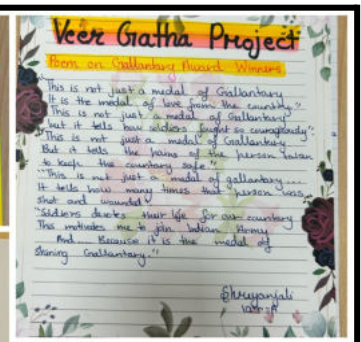 Veer Gatha Project
Poem on Gallantary Award Winners
"This is not just a medal of Gallantary
It is the medal of love from the country"
"This is not just a medal of Gallantary
but it tells how soldiers fought so courageously"
"This is not just a medal of Gallantary
But it tells the pains of the person taken
to keep the country safe"
"This is not just a medal of gallantary....
It tells how many times that person was
shot and wounded"
"Soldiers devotes their life for our country
This motivates me to join Indian Army
And.... Because it is the medal of
Shining Gallantary."
Shreyanjali